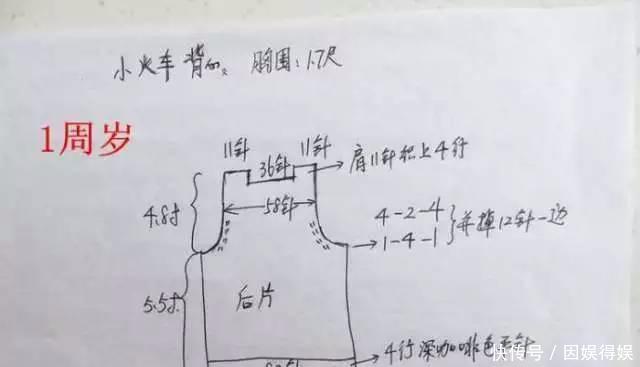 小火车背心 胸围:1.7尺
1周岁
11针 11针
36针 肩11针织上4行
4.8寸 58针
4-2-4
1-4-1 并掉12针一边
5.5寸 后片
4行深咖啡色
快传号 / 因娱得娱